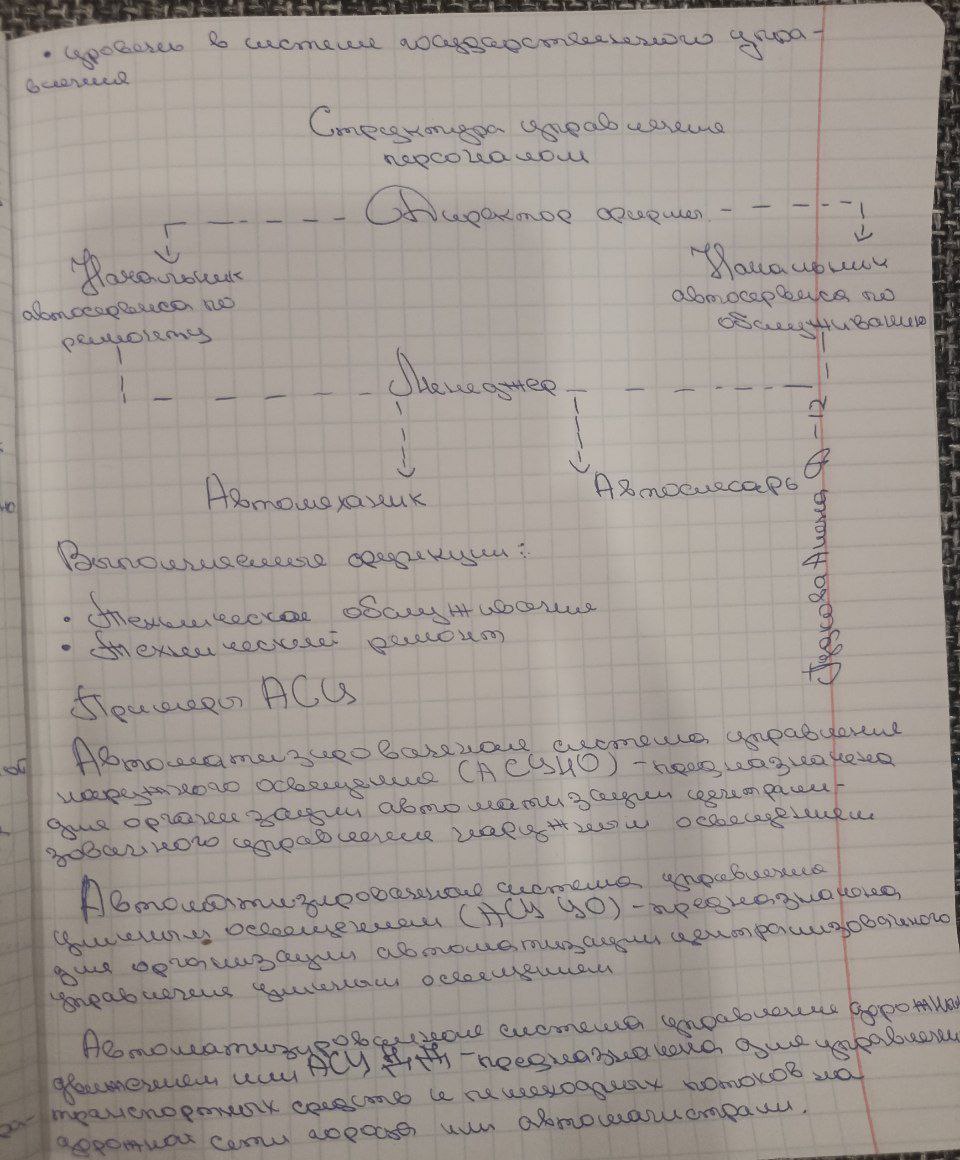 • уровень в системе государственного упра-
вления
Структура управления
персоналом
Директор фирмы
Начальник
автосервиса по
ремонту
Начальник
автосервиса по
обслуживанию
Менеджер
Автомеханик
Автослесарь
Алена Ф-12
Выполняемые функции:
• Техническое обслуживание
• Технический ремонт
Примеры АСУ
Автоматизированная система управления
наружного освещения (АСУНО) - предназначена
для организации автоматизации централи-
зованного управления наружным освещением
Автоматизированная система управления
уличным освещением (АСУ УО) - предназначена
для организации автоматизации централизованного
управления уличным освещением
Автоматизированная система управления дорожным
движением или АСУ ДД - предназначена для управления
транспортных средств и пешеходных потоков на
дорожной сети города или автомагистрали.